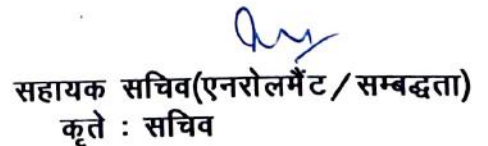 सहायक सचिव(एनरोलमैंट/सम्बद्धता)
कृते : सचिव